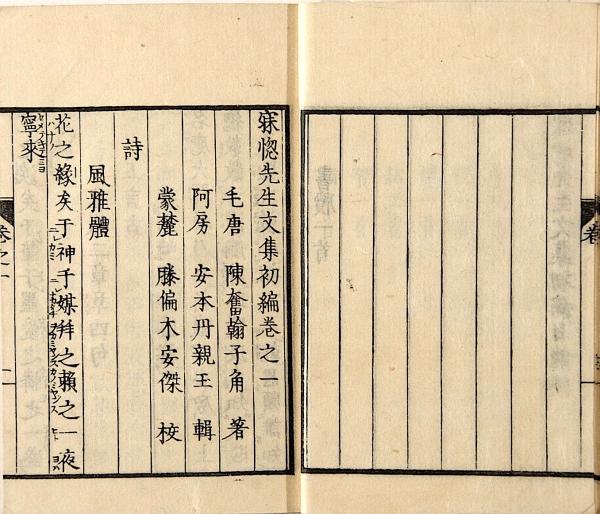 寐愡先生文集初編卷之一
毛唐　陳奮翰子角　著
阿房　安本丹親王　輯
蒙麓　滕偏木安傑　校
詩
風雅體
花之緣矣于神于媒拜之賴之一夜
寧來
卷之一
一